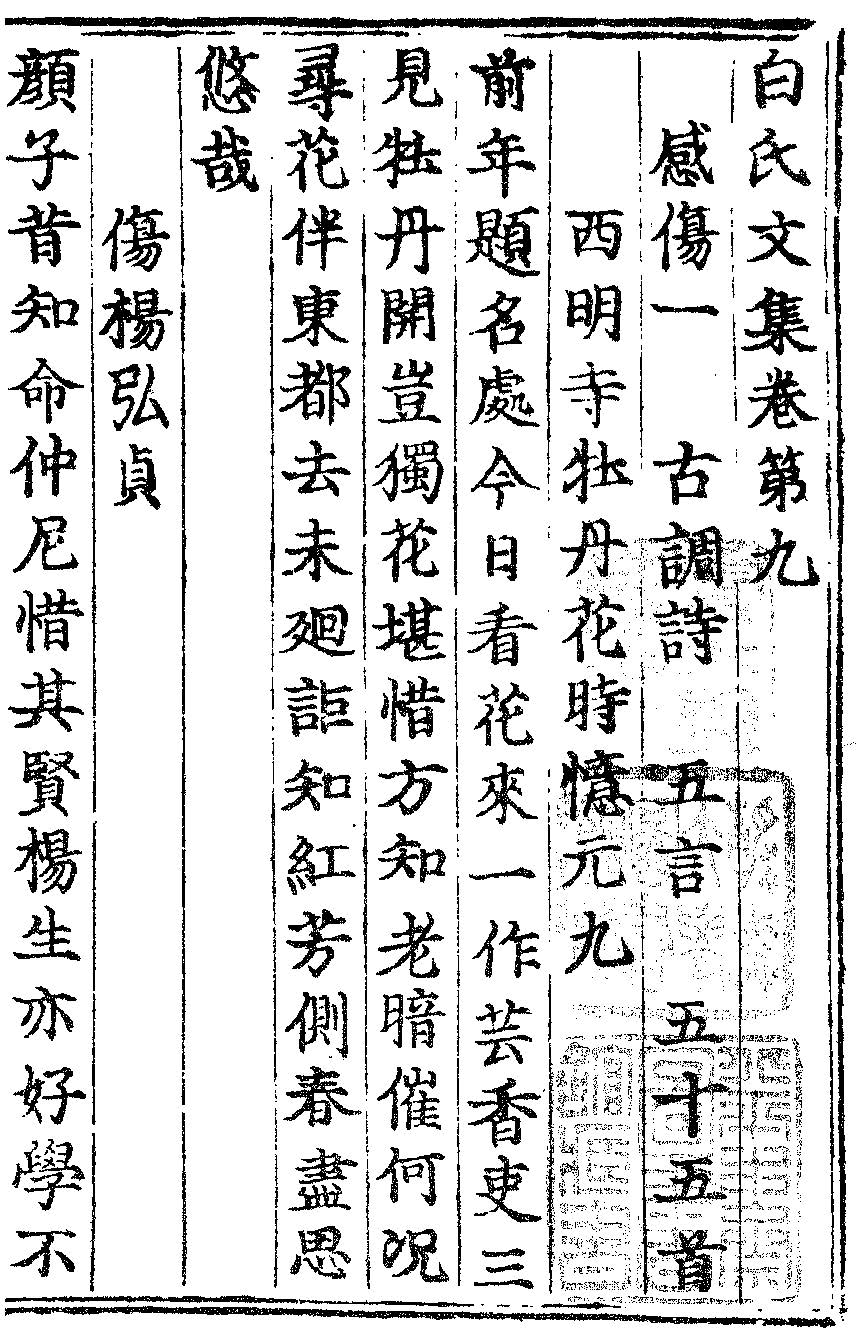 白氏文集卷第九
感傷一　古調詩　五言　五十五首
西明寺牡丹花時憶元九
前年題名處今日看花來一作芸香吏三
見牡丹開豈獨花堪惜方知老暗催何況
尋花伴東都去未廻詎知紅芳側春盡思
悠哉
傷楊弘貞
顔子昔知命仲尼惜其賢楊生亦好學不